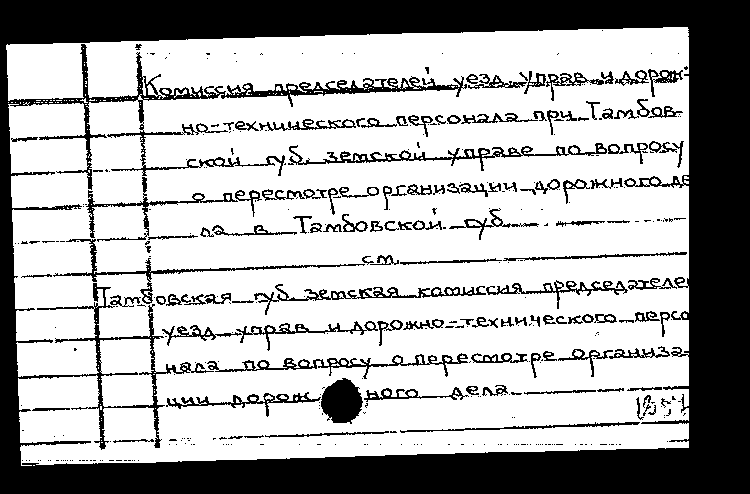 Комиссия председателей уезд. управ и дорож-
но-технического персонала при Тамбов-
ской губ. земской управе по вопросу
о пересмотре организации дорожного де
ла в Тамбовской губ.
см.
Тамбовская губ. земская комиссия председателе
уезд управ и дорожно-технического персо
нала по вопросу о пересмотре организа-
ции дорожного дела